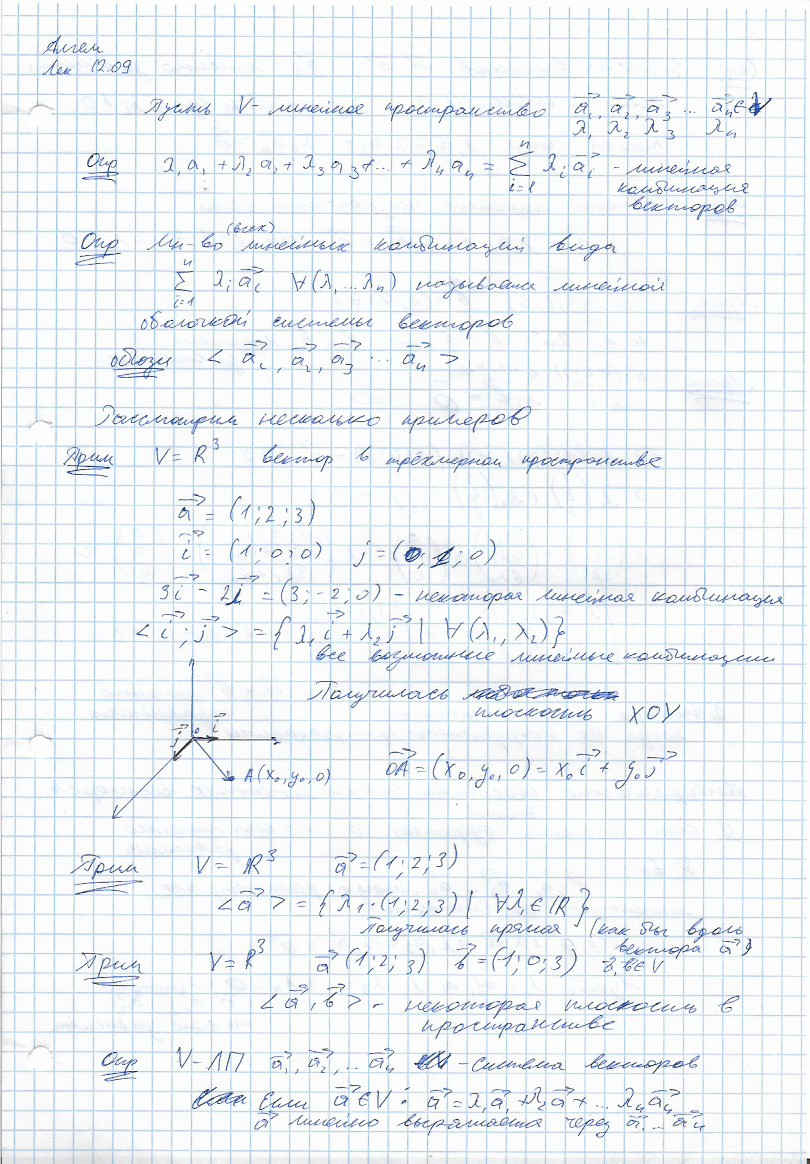 Ангем
Лек 12.09
Пусть V - линейное пространство a⃗₁, a⃗₂, a⃗₃ ... a⃗ₙ ∈ V
λ₁ λ₂ λ₃ λₙ
Опр λ₁a₁ + λ₂a₁ + λ₃a₃ + ... + λₙaₙ = ∑ᵢ₌₁ⁿ λᵢa⃗ᵢ - линейная
комбинация
векторов
Опр Мн-во (всех) линейных комбинаций вида
∑ᵢ₌₁ⁿ λᵢa⃗ᵢ ∀(λ₁...λₙ) называется линейной
оболочкой системы векторов
обозн < a⃗ᵢ, a⃗₂, a⃗₃ ... a⃗ₙ >
Рассмотрим несколько примеров
Прим V = R³ вектор в трёхмерном пространстве
a⃗ = (1; 2; 3)
i⃗ = (1; 0; 0) j = (0; 1; 0)
3i⃗ - 2j⃗ = (3; -2; 0) - некоторая линейная комбинация
< i⃗; j⃗ > = { λ₁i⃗ + λ₂j⃗ | ∀(λ₁, λ₂) }
все возможные линейные комбинации
Получилась
плоскость XOY
j⃗ 0 i⃗
A(x₀, y₀, 0)
OA⃗ = (x₀, y₀, 0) = x₀i⃗ + y₀j⃗
Прим V = ℝ³ a⃗ = (1; 2; 3)
< a⃗ > = { λ₁·(1; 2; 3) | ∀λ₁ ∈ ℝ }
Получилась прямая (как бы вдоль
вектора a⃗)
Прим V = R³ a⃗ (1; 2; 3) b⃗ = (-1; 0; 3) a⃗, b⃗ ∈ V
< a⃗, b⃗ > - некоторая плоскость в
пространстве
Опр V - ЛП a⃗₁, a⃗₂, ... a⃗ₙ - система векторов
Если a⃗ ∈ V : a⃗ = λ₁a⃗₁ + λ₂a⃗ + ... λₙa⃗ₙ
a⃗ линейно выражается через a⃗₁ ... a⃗ₙ